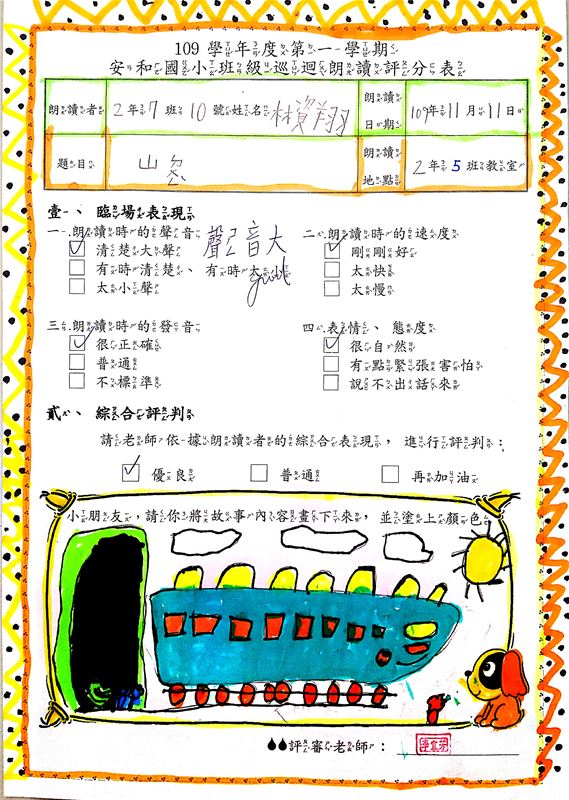 109學年度第一學期
安和國小班級巡迴朗讀評分表
朗讀者 2年7班10號姓名 林資翔 朗讀日期 109年11月11日
題目 山ㄉㄨㄥˋ 朗讀地點 2年5班教室
壹、臨場表現
一、朗讀時的聲音 聲音大
清楚大聲
有時清楚、有時太小
太小聲
good
二、朗讀時的速度
剛剛好
太快
太慢
三、朗讀時的發音
很正確
普通
不標準
四、表情、態度
很自然
有點緊張害怕
說不出話來
貳、綜合評判
請老師依據朗讀者的綜合表現，進行評判：
優良 普通 再加油
小朋友，請你將故事內容畫下來，並塗上顏色
評審老師：